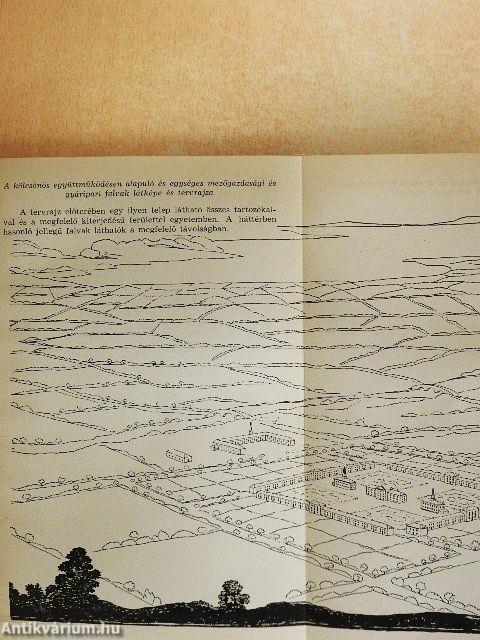 A kölcsönös együttműködésen alapuló és egységes mezőgazdasági és
gyáripari falvak látképe és tervrajza
A tervrajz előterében egy ilyen telep látható összes tartozékai-
val és a megfelelő kiterjedésű területtel egyetemben. A háttérben
hasonló jellegű falvak láthatók a megfelelő távolságban.
Antikvárium.hu